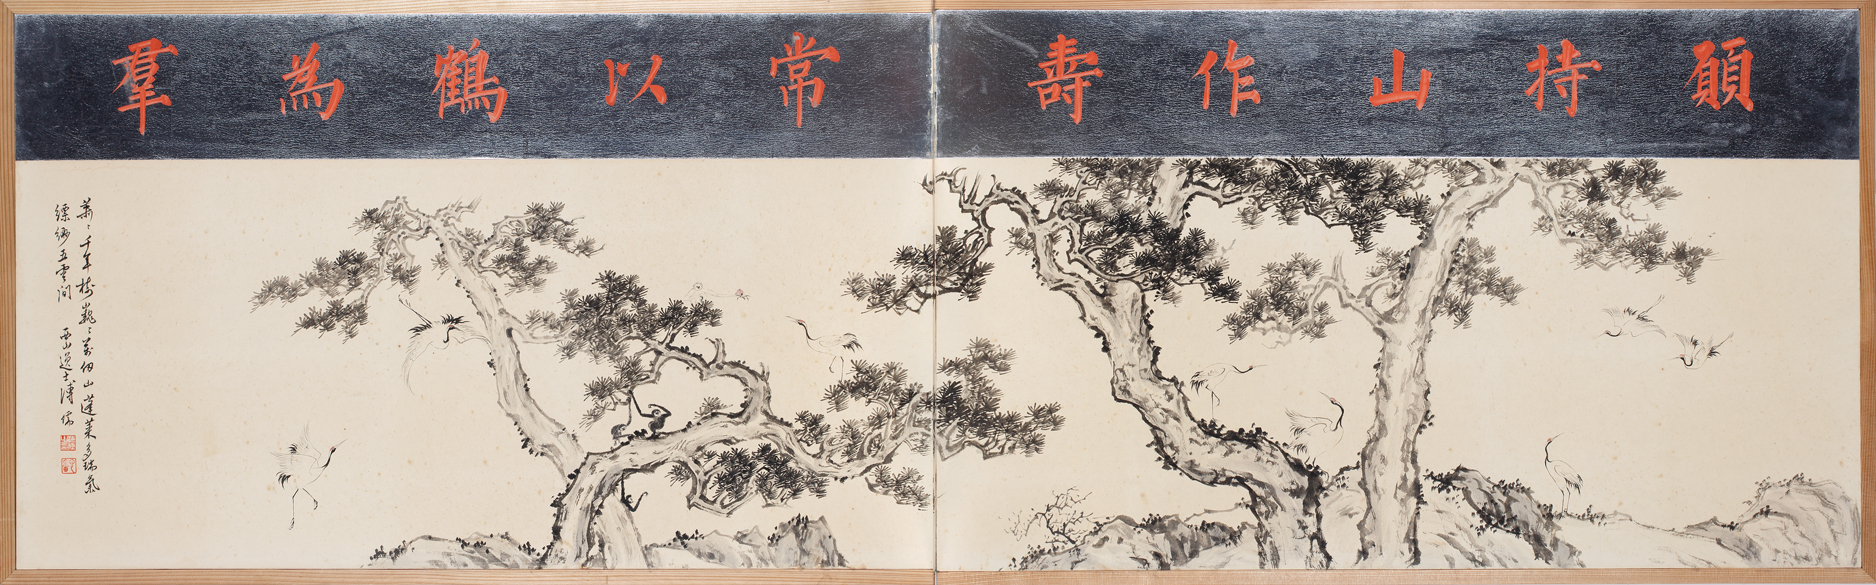 願持山作壽
常以鶴為羣
蕭〻千年樹巍〻萬仞山蓬萊多瑞氣
縹緲五雲間 西山逸士溥儒